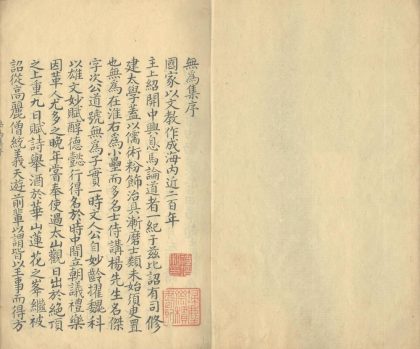 無為集序
國家以文教作成海内近二百年
主上紹開中興息馬論道者一紀于兹比詔有司修
建太學蓋以儒術粉飾治具漸磨士類未始須更置
也無為在淮右為小壘而多名士侍講楊先生名傑
字次公道號無為子實一時文人公自妙齡擢魏科
以雄文妙賦醇德懿行得名於時中間立朝議禮樂
因革人尤多之晚年當奉使過太山觀日出於絶頂
之上重九日賦詩舉酒於華山蓮花之峯繼被
詔從高麗僧統義天遊前輩以謂皆以王事而得方